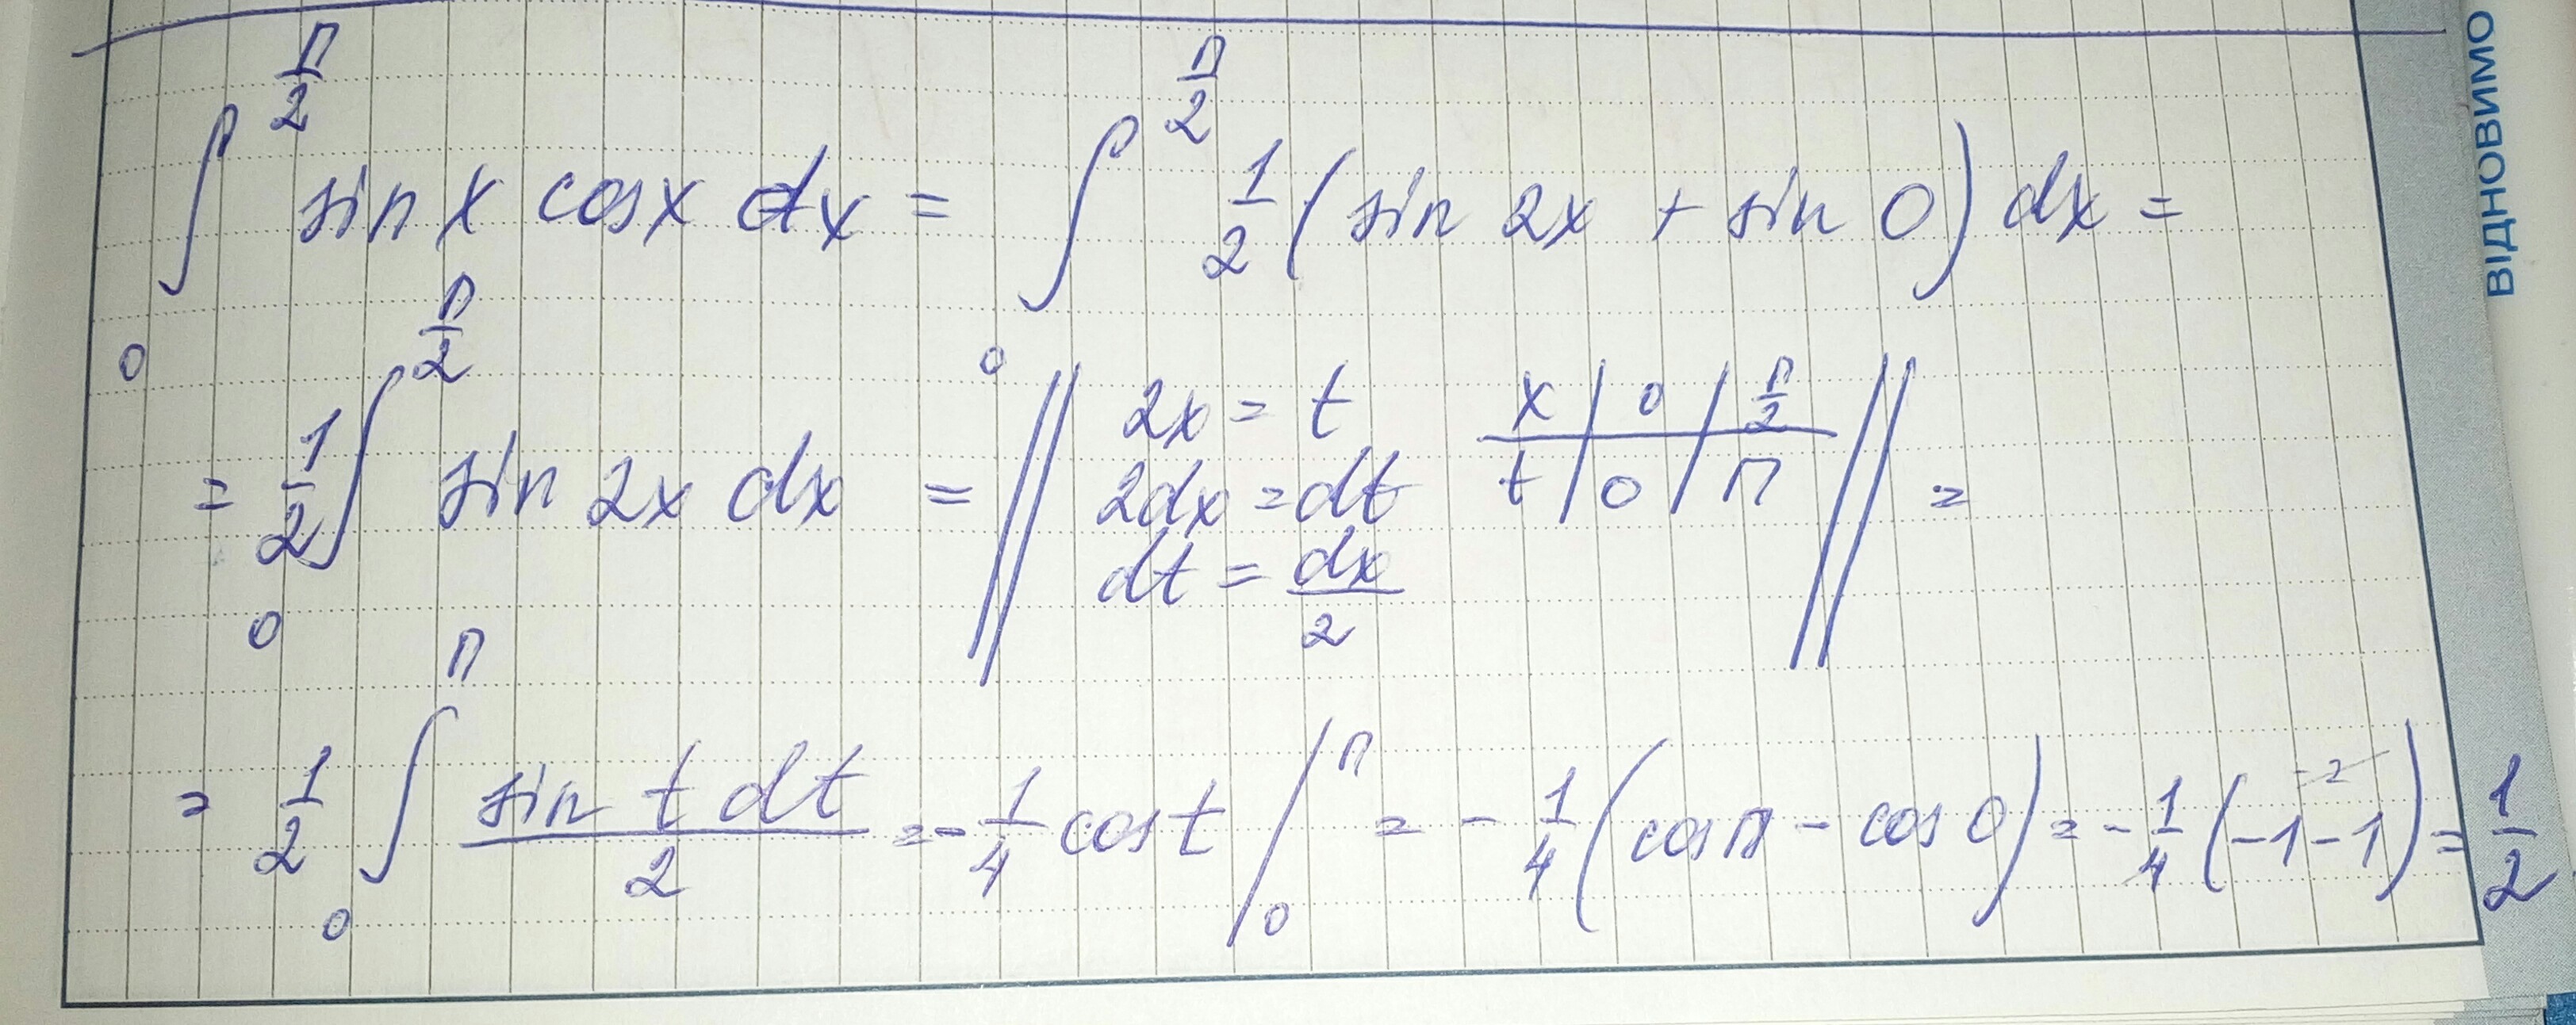 ∫₀^(π/2) sin x cos x dx = ∫₀^(π/2) 1/2 (sin 2x + sin 0) dx =
= 1/2 ∫₀^(π/2) sin 2x dx = || 2x = t   x | 0 | π/2 || =
2dx = dt   t | 0 | π
dt = dx/2
= 1/2 ∫₀^π (sin t dt)/2 = - 1/4 cos t |₀^π = - 1/4 (cos π - cos 0) = - 1/4 (-1 - 1) = 1/2
-2
ВІДНОВИМО